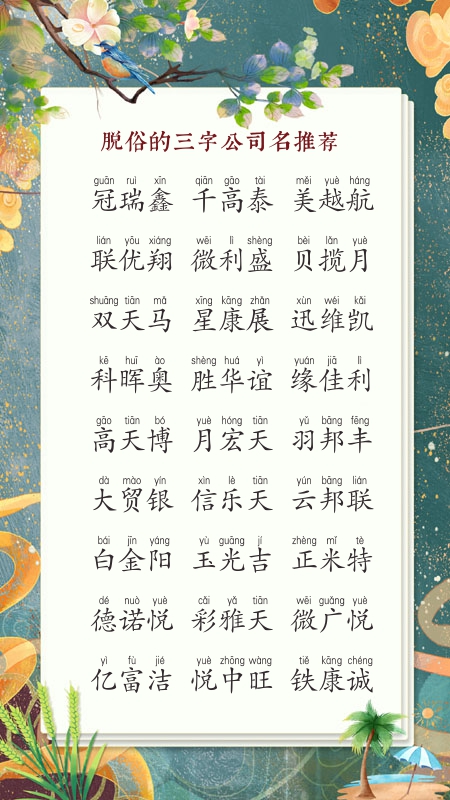 脱俗的三字公司名推荐
guān ruì xīn qiān gāo tài měi yuè háng
冠瑞鑫 千高泰 美越航
lián yōu xiáng wēi lì shèng bèi lǎn yuè
联优翔 微利盛 贝揽月
shuāng tiān mǎ xīng kāng zhǎn xùn wéi kǎi
双天马 星康展 迅维凯
kē huī ào shèng huá yì yuán jiā lì
科晖奥 胜华谊 缘佳利
gāo tiān bó yuè hóng tiān yǔ bāng fēng
高天博 月宏天 羽邦丰
dà mào yín xìn lè tiān yún bāng lián
大贸银 信乐天 云邦联
bái jīn yáng yù guāng jí zhèng mǐ tè
白金阳 玉光吉 正米特
dé nuò yuè cǎi yǎ tiān wēi guǎng yuè
德诺悦 彩雅天 微广悦
yì fù jié yuè zhōng wàng tiě kāng chéng
亿富洁 悦中旺 铁康诚